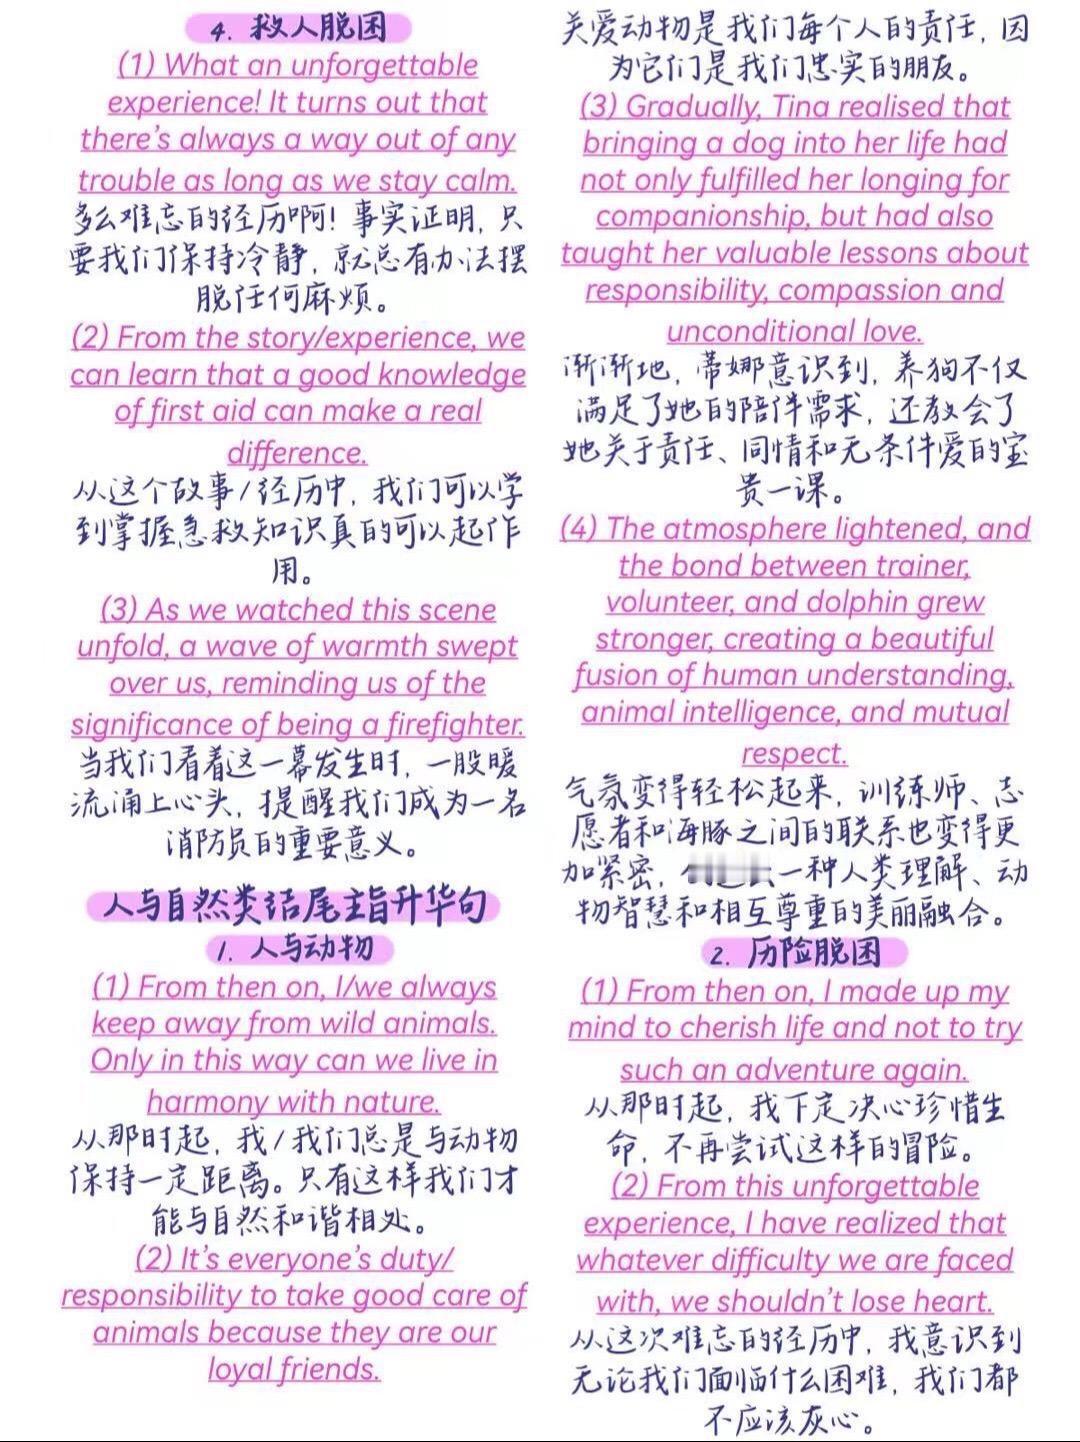 4. 救人脱困
(1) What an unforgettable
experience! It turns out that
there's always a way out of any
trouble as long as we stay calm.
多么难忘的经历啊！事实证明，只
要我们保持冷静，就总有办法摆
脱任何麻烦。
(2) From the story/experience, we
can learn that a good knowledge
of first aid can make a real
difference.
从这个故事/经历中，我们可以学
到掌握急救知识真的可以起作
用。
(3) As we watched this scene
unfold, a wave of warmth swept
over us, reminding us of the
significance of being a firefighter.
当我们看着这一幕发生时，一股暖
流涌上心头，提醒我们成为一名
消防员的重要意义。
人与自然类结尾主旨升华句
1. 人与动物
(1) From then on, I/we always
keep away from wild animals.
Only in this way can we live in
harmony with nature.
从那时起，我/我们总是与动物
保持一定距离。只有这样我们才
能与自然和谐相处。
(2) It's everyone's duty/
responsibility to take good care of
animals because they are our
loyal friends.
关爱动物是我们每个人的责任，因
为它们是我们忠实的朋友。
(3) Gradually, Tina realised that
bringing a dog into her life had
not only fulfilled her longing for
companionship, but had also
taught her valuable lessons about
responsibility, compassion and
unconditional love.
渐渐地，蒂娜意识到，养狗不仅
满足了她的陪伴需求，还教会了
她关于责任、同情和无条件爱的宝
贵一课。
(4) The atmosphere lightened, and
the bond between trainer,
volunteer, and dolphin grew
stronger, creating a beautiful
fusion of human understanding,
animal intelligence, and mutual
respect.
气氛变得轻松起来，训练师、志
愿者和海豚之间的联系也变得更
加紧密，一种人类理解、动
物智慧和相互尊重的美丽融合。
2. 历险脱困
(1) From then on, I made up my
mind to cherish life and not to try
such an adventure again.
从那时起，我下定决心珍惜生
命，不再尝试这样的冒险。
(2) From this unforgettable
experience, I have realized that
whatever difficulty we are faced
with, we shouldn't lose heart.
从这次难忘的经历中，我意识到
无论我们面临什么困难，我们都
不应该灰心。